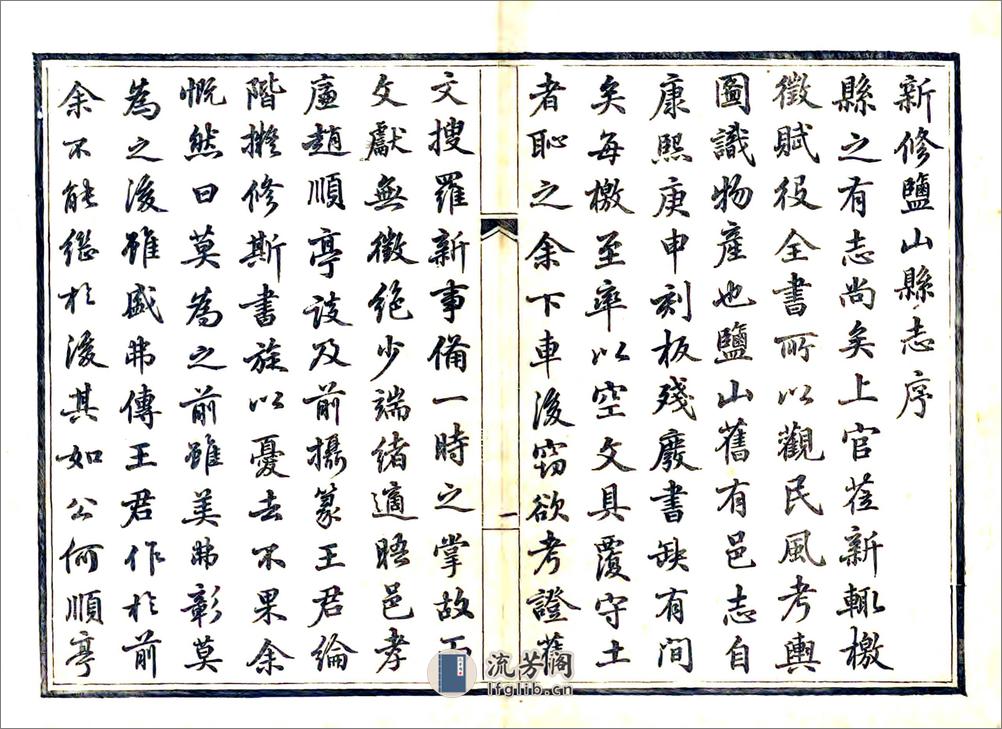 新修鹽山縣志序
縣之有志尚矣上官莅新輒檄
徵賦役全書所以觀民風考輿
圖識物產也鹽山舊有邑志自
康熙庚申刻板殘廢書缺有間
矣每檄至率以空文具覆守土
者恥之余下車後竊欲考證舊
文搜羅新事備一時之掌故而
文獻無徵絕少端緒適晤邑孝
廉趙順亭談及前攝篆王君綸
階擬修斯書旋以憂去不果余
慨然曰莫為之前雖美弗彰莫
為之後雖盛弗傳王君作於前
余不能繼於後其如公何順亭
一
流芳阁
lfglib.cn